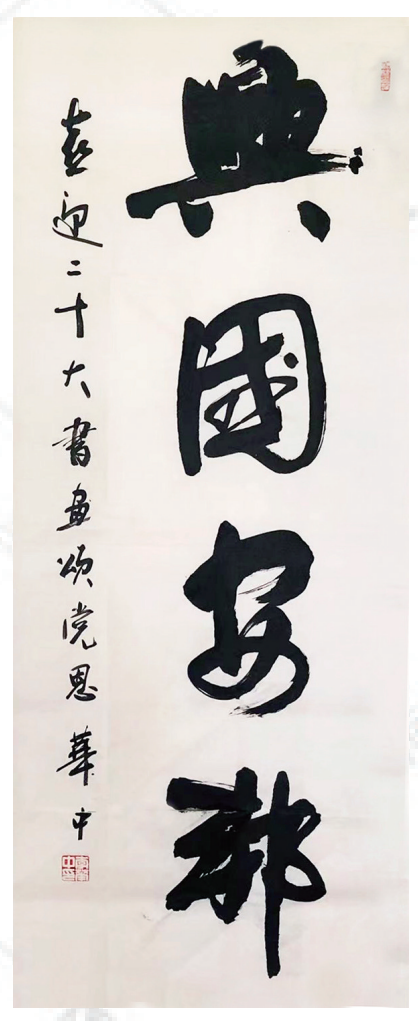 興國安邦
喜迎二十大書畫頌党恩 華中